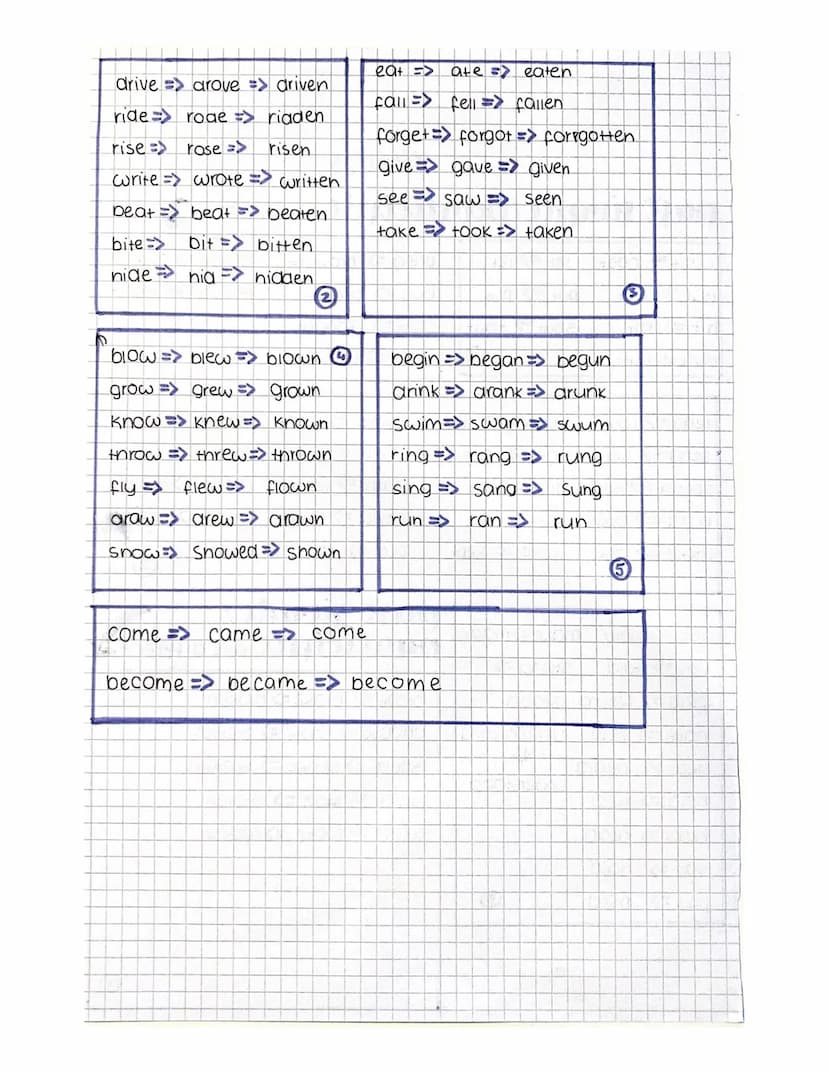 drive => drove => driven
ride => rode => ridden
rise => rose => risen
write => wrote => written
beat => beat => beaten
bite => bit => bitten
hide => hid => hidden
2
eat => ate => eaten
fall => fell => fallen
forget => forgot => forrgotten
give => gave => given
see => saw => seen
take => took => taken
3
blow => blew => blown 4
grow => grew => grown
know => knew => known
throw => threw => thrown
fly => flew => flown
draw => drew => drawn
show => showed => shown
begin => began => begun
drink => drank => drunk
swim => swam => swum
ring => rang => rung
sing => sang => sung
run => ran => run
5
come => came => come
become => became => become